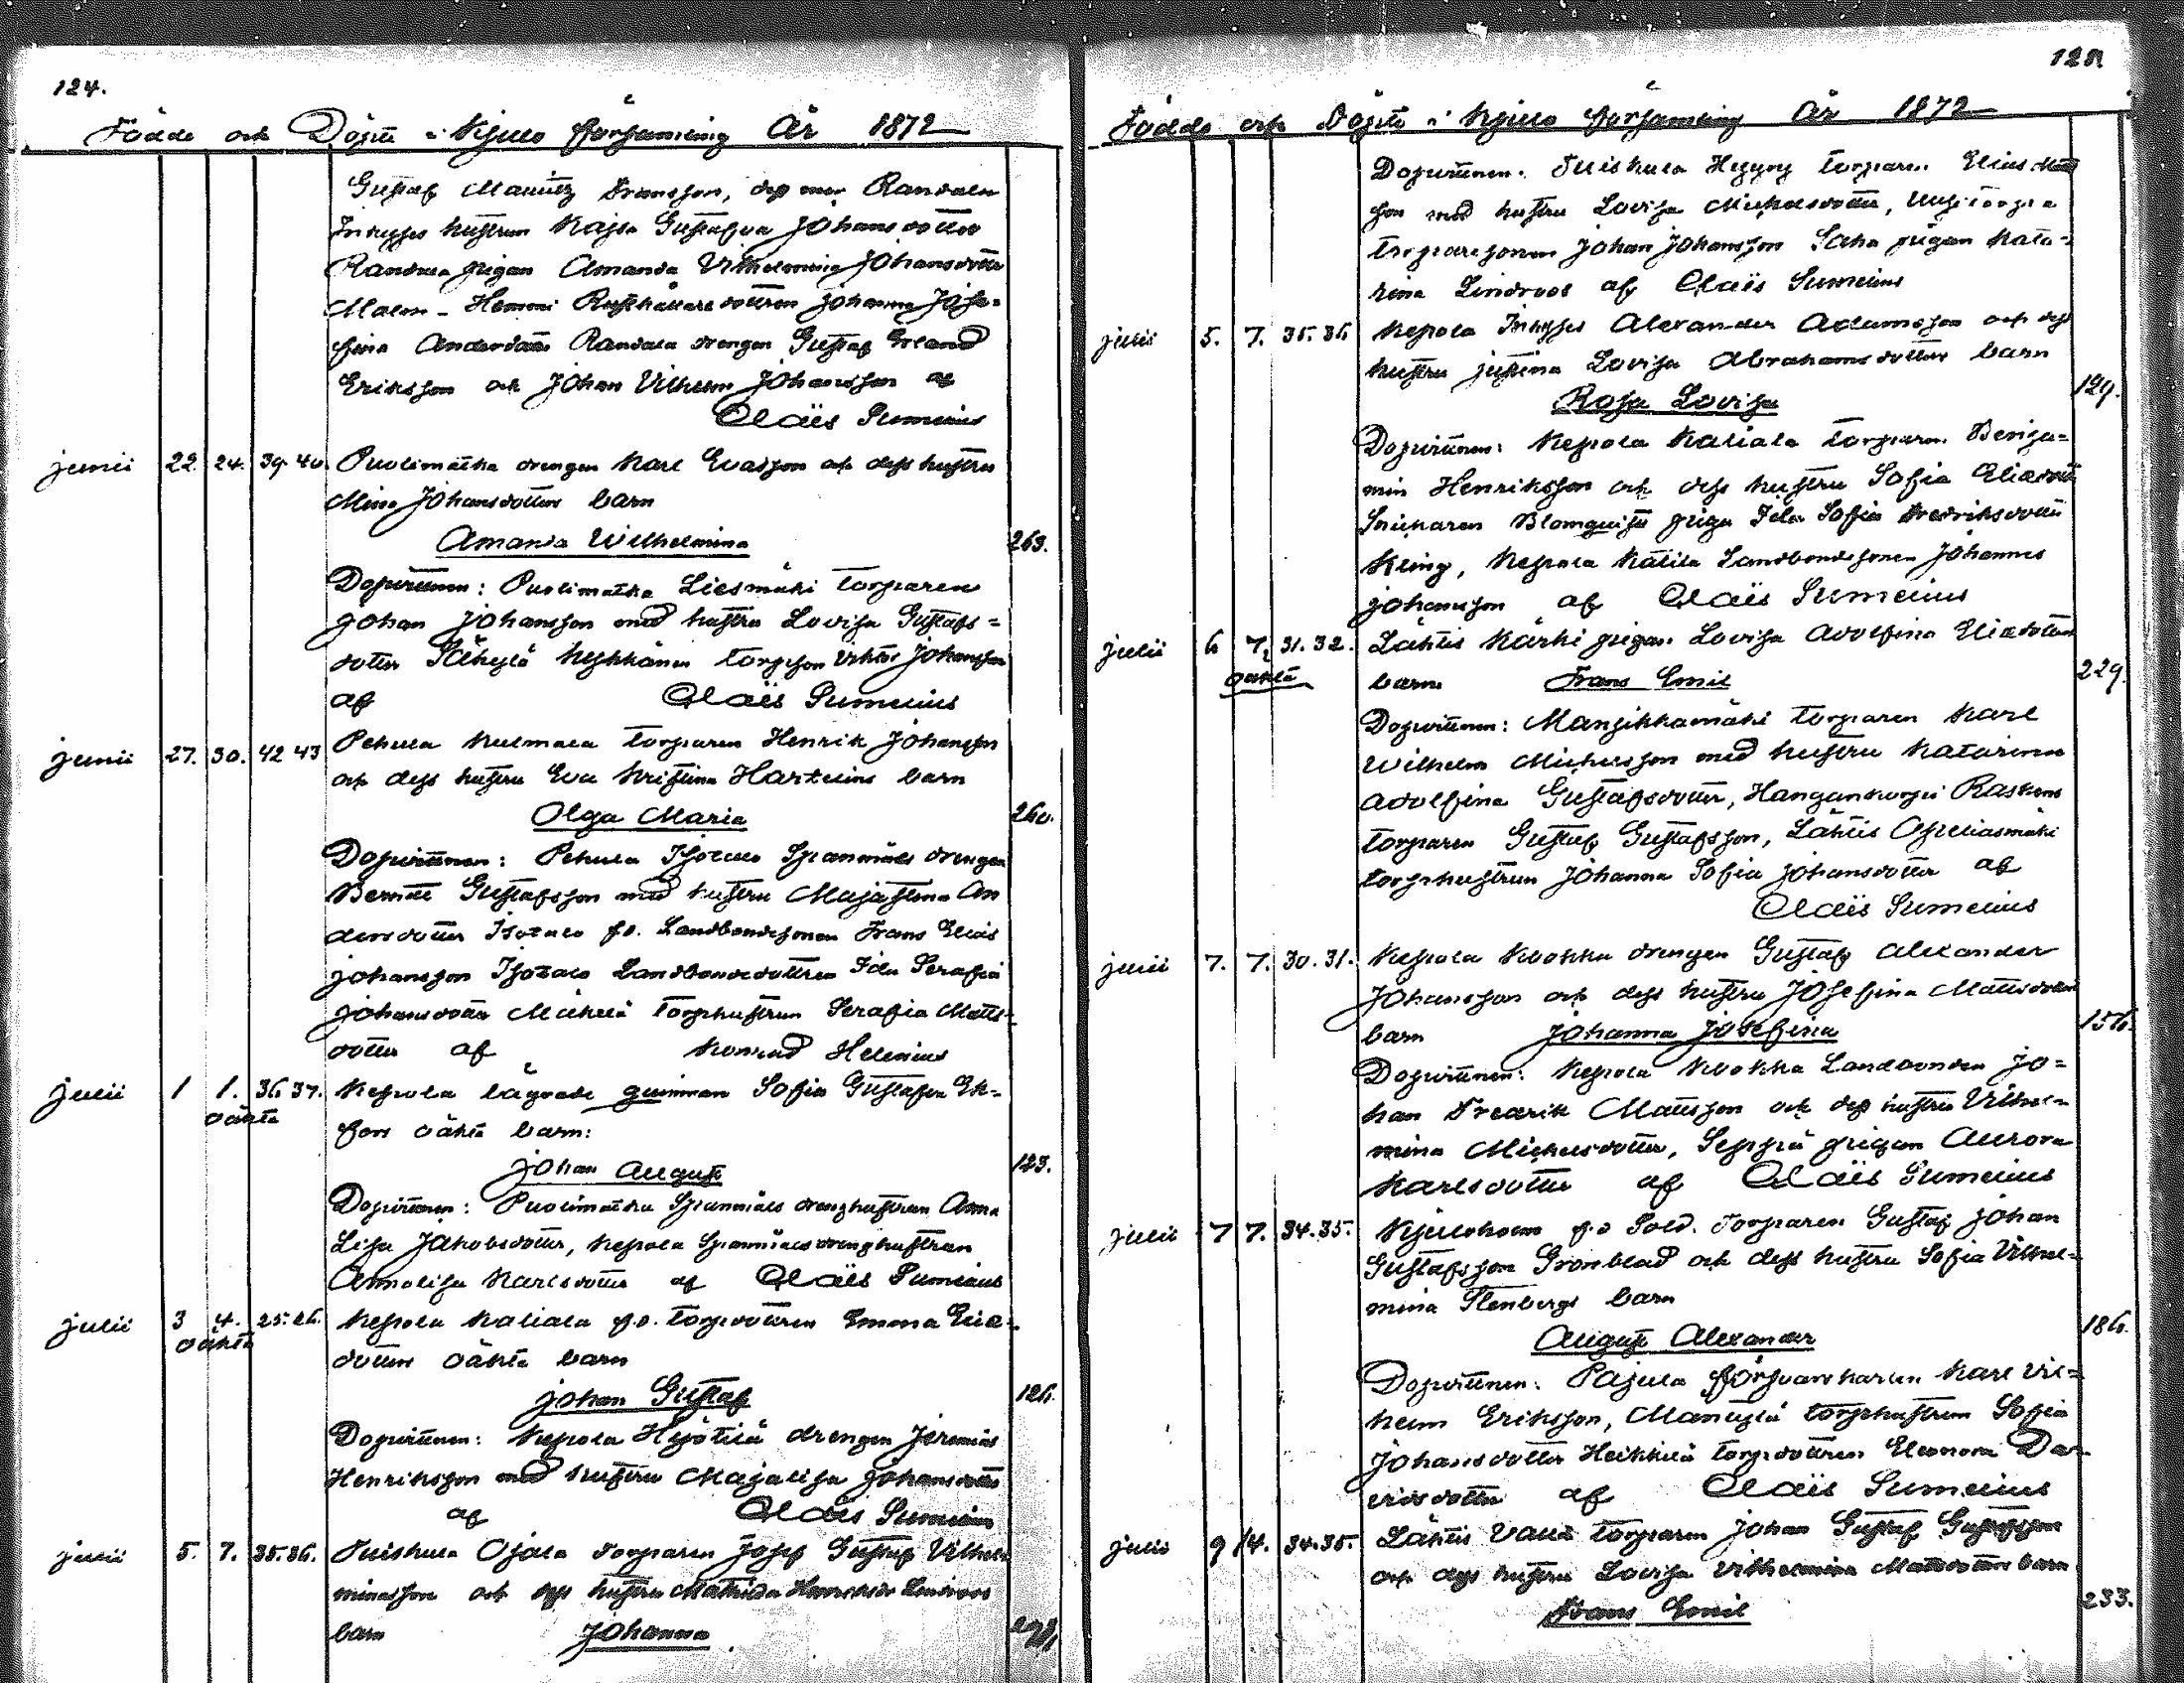 124.
Födde och Döpte i Kjulo församling År 1872
Gustaf Mauritz Fransson, dess mor Randala
Inhyses hustrun Kajsa Gustafva Johansdotter
Randala pigan Amanda Vilhelmina Johansdotter
Johanna Jose=
fina Andersdotter Randala drengen Gustaf Erland
Eriksson och Johan Vilhelm Johansson af
Claës Sumelius
junii 22. 24. 39. 40. Puolimatka drengen Karl Evasson och dess hustru
Mina Johansdotters barn
Amanda Wilhelmina 263.
Dopvittnen: Puolimatka Liesmäki torparen
Johan Johansson med hustru Lovisa Gustafs=
dotter torpson Viktor Johansson
af Claës Sumelius
junii 27. 30. 42 43 Pehula Kulmala torparen Henrik Johansson
och dess hustru Eva Kristina Hartelins barn
Olga Maria 260.
Dopvittnen: Pehula Isotalo Spanmåls drengen
Berndt Gustafsson med hustru Majastina An
dersdotter Isotalo f.d. Landbondesonen Frans Elias
Johansson Isotalo Landbondedottren Ida Serafia
Johansdotter Mikkilä torphustrun Serafia Matts=
dotter af Konrad Helenius
julii 1 1. 36. 37. Kepola lägrade qvinnan Sofia Gustafva Ek=
oäkta fors oäkta barn:
Johan August 123.
Dopvittnen: Puolimatka Spanmåls drenghustrun Anna
Lisa Jakobsdotter, Kepola Spanmåls drenghustrun
Annalisa Karlsdotter af Claës Sumelius
julii 3 4. 25. 26. Kepola Kaliala f.d. torpdottren Emma Elias
oäkta dotters oäkta barn
Johan Gustaf 126.
Dopvittnen: Kepola Hyötilä drengen Jeremias
Henriksson med hustru Majalisa Johansdotter
af Claës Sumelius
julii 5. 7. 35. 36. Tuiskula Ojala torparen Josef Gustaf Vilhel
minasson och dess hustru Mathilda Lindroos
barn Johanna

Födde och Döpte i Kjulo församling År 1872
Dopvittnen: Tuiskula torparen Elias Matts
son med hustru Lovisa Mickelsdotter,
torparesonen Johan Johansson pigan Kata=
rina Lindroos af Claës Sumelius
julii 5. 7. 35. 36 Kepola Inhyses Alexander Adamsson och dess
hustru Justina Lovisa Abrahamsdotters barn
Rosa Lovisa 129.
Dopvittnen: Kepola Kaliala torparen Benja=
min Henriksson och dess hustru Sofia Eliasdotter
Snickaren Blomquists piga Ida Sofia Fredriksdotter
Kling, Kepola Kälilä Landbondesonen Johannes
Johansson af Claës Sumelius
julii 6 7. 31. 32. Lähtis Kärki pigan Lovisa Adolfina Eliasdotters
oäkta barn Frans Emil 229.
Dopvittnen: Mansikkamäki torparen Karl
Wilhelm Mickelsson med hustru Katarina
Adolfina Gustafsdotter, Hangankorpi Raskens
torparen Gustaf Gustafsson, Lähtis
torphustrun Johanna Sofia Johansdotter af
Claës Sumelius
julii 7. 7. 30. 31. Kepola Kuokka drengen Gustaf Alexander
Johansson och dess hustru Josefina Mattsdotters
barn Johanna Josefina 156.
Dopvittnen: Kepola Kuokka Landbonden Jo=
han Fredrik Mattsson och dess hustru Vilhel=
mina Mickelsdotter, Seppä pigan Aurora
Karlsdotter af Claës Sumelius
julii 7 7. 34. 35. Kjuloholm f.d. Sold. Torparen Gustaf Johan
Gustafsson Grönblad och dess hustru Sofia Vilhel=
mina Stenbergs barn
August Alexander 186.
Dopvittnen: Pajula försvarskarlen Karl Vil=
helm Eriksson, torphustrun Sofia
Johansdotter Heikkilä torpdottren Eleonora Da=
vidsdotter af Claës Sumelius
julii 9 14. 34. 35. Lähtis torparen Johan Gustaf Gustafsson
och dess hustru Lovisa Vilhelmina Mattsdotters barn
Frans Emil 233.